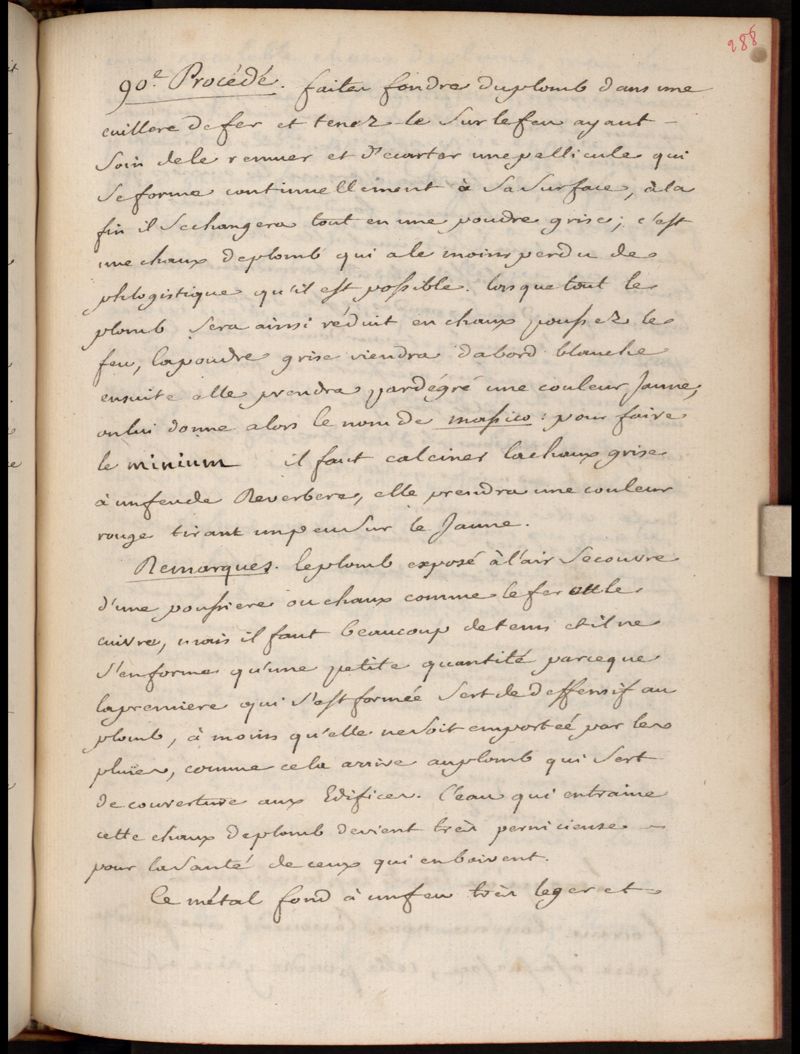 288
90.e Procédé. faites fondre du plomb dans une
cuillere de fer et tenez le sur le feu ayant –
soin de le remuer et d'ecarter une pellicule qui
se forme continuellement à sa surface, à la
fin il se changera tout en une poudre grise; c'est
une chaux de plomb qui a le moins perdu de
phlogistique qu'il est possible. lorsque tout le
plomb sera ainsi réduit en chaux poussez le
feu, la poudre grise viendra dabord blanche
ensuite elle prendra par dégré une couleur Jaune,
on lui donne alors le nom de massico: pour faire
le minium il faut calciner la chaux grise
à un feu de Reverbere, elle prendra une couleur
rouge tirant un peu sur le Jaune.
Remarques. le plomb exposé à l'air se couvre
d'une poussiere ou chaux comme le fer et le
cuivre, mais il faut beaucoup de tems et il ne
s'en forme qu'une petite quantité parceque
la premiere qui s'est formée sert de deffensif au
plomb, à moins qu'elle ne soit emporteé par les
pluies, comme cela arrive au plomb qui sert
de couverture aux Edifices. l'eau qui entraine
cette chaux de plomb devient très pernicieuse –
pour la santé de ceux qui en boivent.
Ce métal fond à un feu très leger et